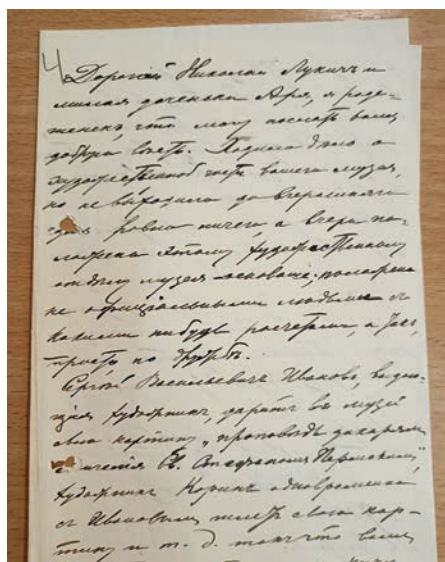 4
Дорогой Николай Лукичъ и
милая доченька Аря, я ради-
женекъ, что могу послать вамъ
добрую весть.
художественной части вашего музея,
но не выходило до вчерашняго
дня ровно ничего, а вчера по-
ложено этому художественному
отделу музея основаніе, положено
не офиціальными людьми съ
какими нибудь расчетами, а такъ,
просто по дружбѣ.
Сергѣй Васильевичъ Ивановъ, выдаю-
щійся художникъ, даритъ въ музей
свою картину „проповѣдь дикарямъ
Св. Стефаномъ Пермскимъ“,
художникъ Коринъ одновременно
съ Ивановымъ шлетъ свою кар-
тину и т. д. такъ что вашъ